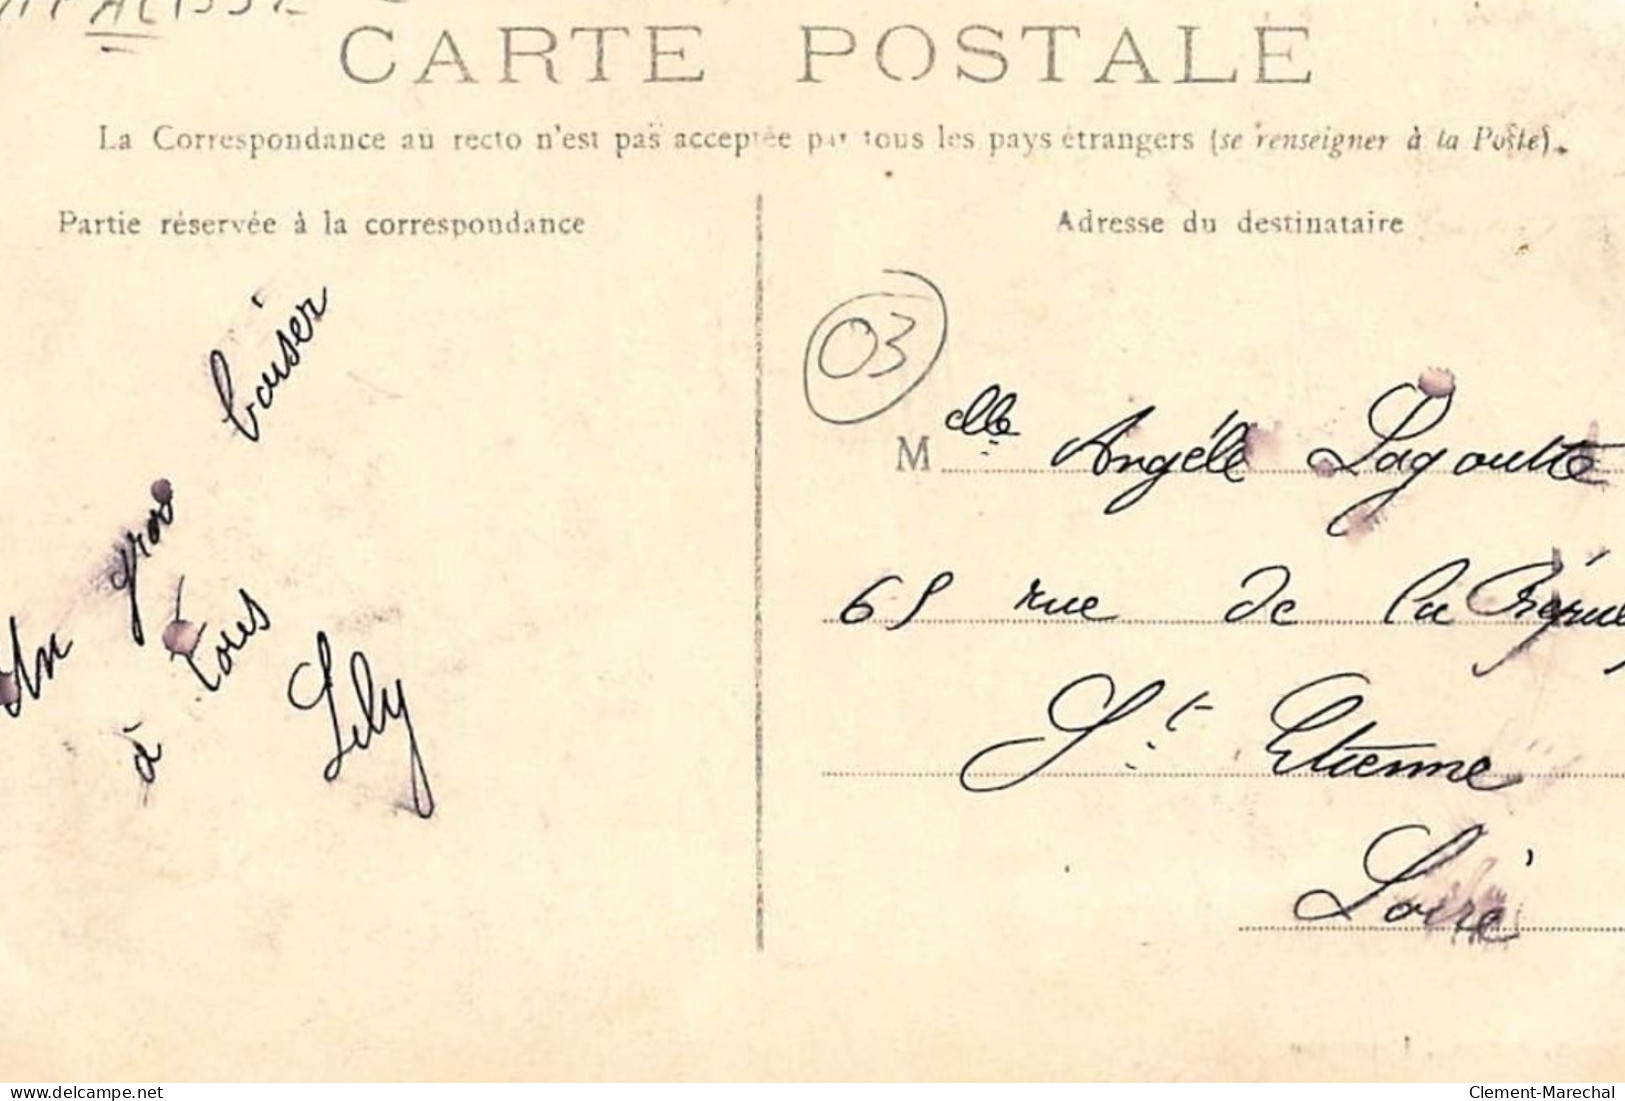 CARTE POSTALE
La Correspondance au recto n'est pas acceptée par tous les pays étrangers (se renseigner à la Poste).
Partie réservée à la correspondance
Adresse du destinataire
Un gros baiser
à tous
Lily
03
Melle Angéle Lagoutte
65 rue de la Répu
St Etienne
Loire
delcampe.net
Clement-Marechal